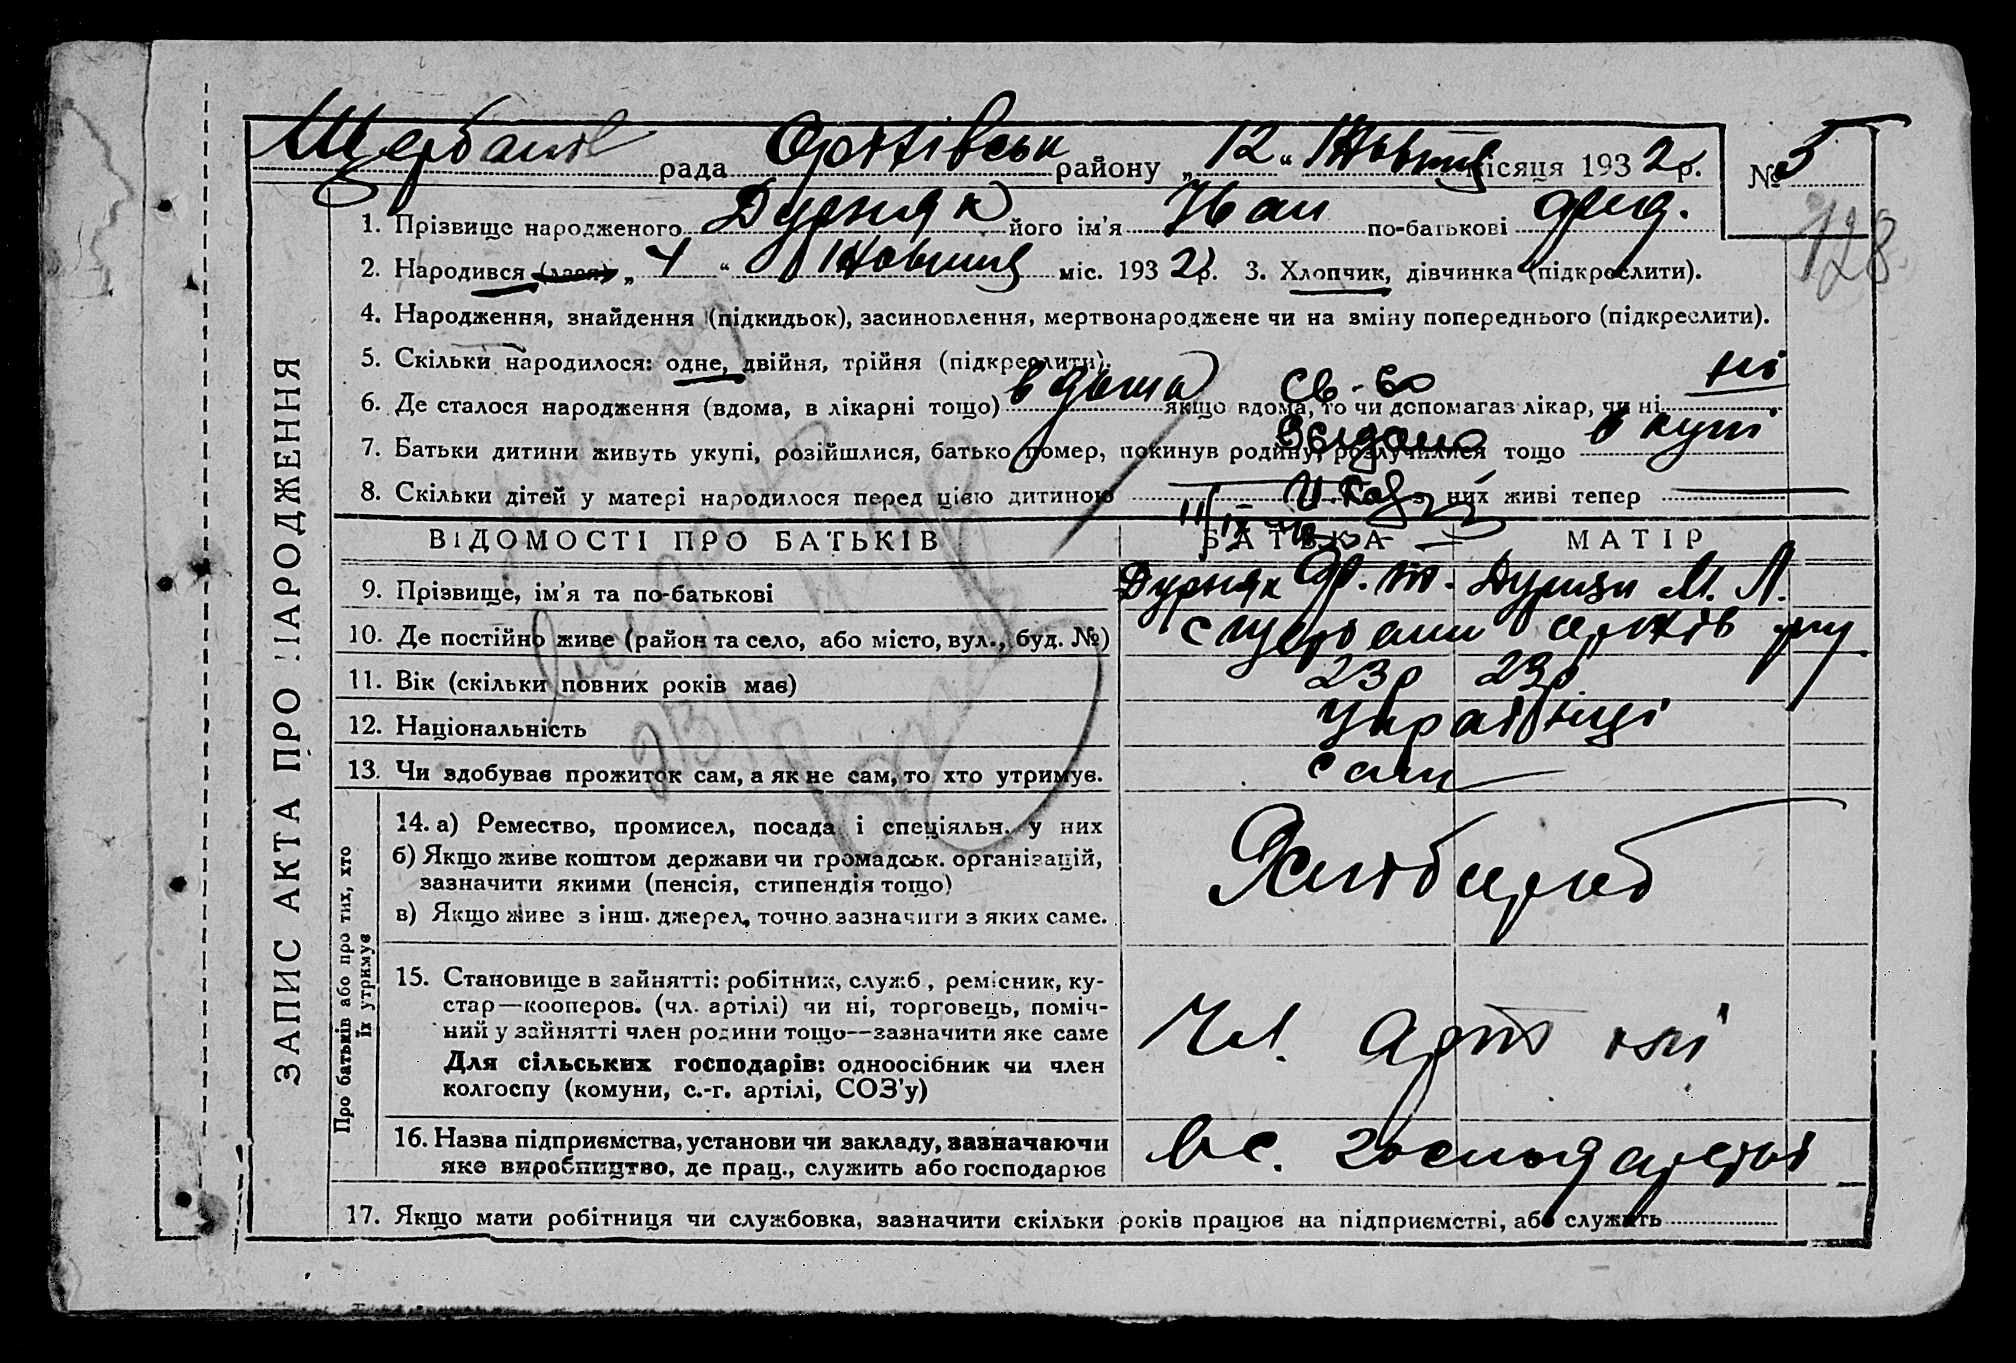 рада району „ 12 “ місяця 1932 р. № 5
128
ЗАПИС АКТА ПРО НАРОДЖЕННЯ
1. Прізвище народженого Дурняк його ім'я Иван по-батькові
2. Народився (лася) „ 4 “ міс. 1932 р. 3. Хлопчик, дівчинка (підкреслити).
4. Народження, знайдення (підкидьок), засиновлення, мертвонароджене чи на зміну попереднього (підкреслити).
5. Скільки народилося: одне, двійня, трійня (підкреслити).
6. Де сталося народження (вдома, в лікарні тощо) в дома якщо вдома, то чи допомагав лікар, чи ні ні
св-во
7. Батьки дитини живуть укупі, розійшлися, батько помер, покинув родину, розлучилися тощо в купі
8. Скільки дітей у матері народилося перед цією дитиною з них живі тепер
ВІДОМОСТІ ПРО БАТЬКІВ БАТЬКА МАТІР
9. Прізвище, ім'я та по-батькові Дурняк М. Л.
10. Де постійно живе (район та село, або місто, вул., буд. №)
11. Вік (скільки повних років має) 23 р 23 р
12. Національність Українці
13. Чи здобував прожиток сам, а як не сам, то хто утримув. сам
Про батьків або про тих, хто їх утримує
14. а) Ремество, промисел, посада і спеціяльн. у них
б) Якщо живе коштом держави чи громадськ. організацій,
зазначити якими (пенсія, стипендія тощо)
в) Якщо живе з інш. джерел, точно зазначити з яких саме.
Хлібороб
15. Становище в зайнятті: робітник, служб., ремісник, ку-
стар—кооперов. (чл. артілі) чи ні, торговець, поміч-
ний у зайнятті член родини тощо—зазначити яке саме
Для сільських господарів: одноосібник чи член
колгоспу (комуни, с.-г. артілі, СОЗ'у)
Чл. артілі
16. Назва підприємства, установи чи закладу, зазначаючи
яке виробництво, де прац., служить або господарює
17. Якщо мати робітниця чи службовка, зазначити скільки років працює на підприємстві, або служить